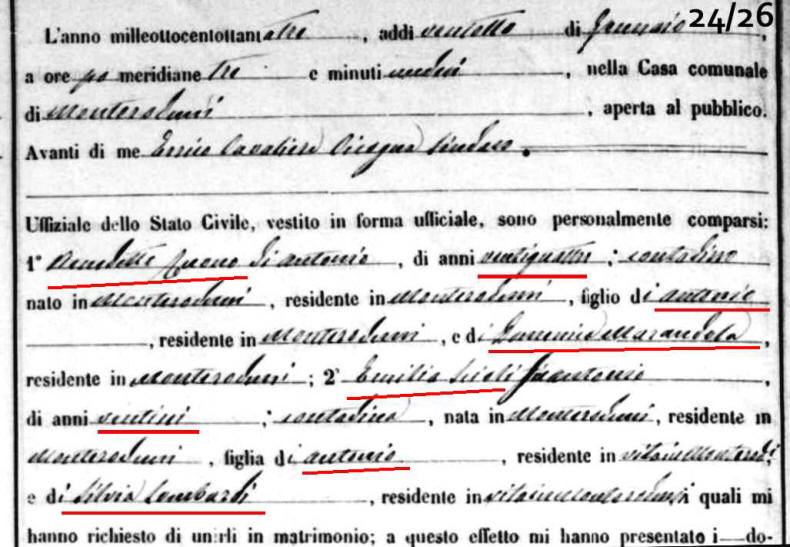 24/26
L'anno milleottocentottantatre, addi ventotto di Gennaio,
a ore po meridiane tre e minuti undici, nella Casa comunale
di Monteroduni, aperta al pubblico.
Avanti di me Errico Cavaliere Sindaco.
Uffiziale dello Stato Civile, vestito in forma ufficiale, sono personalmente comparsi:
1° Benedetto Cuono di Antonio, di anni ventiquattro; contadino
nato in Monteroduni, residente in Monteroduni, figlio di Antonio
, residente in Monteroduni, e di Domenica Marandola,
residente in Monteroduni; 2° Emilia Scioli fu Antonio,
di anni ventuni; contadina, nata in Monteroduni, residente in
Monteroduni, figlia di Antonio, residente in vita in Monteroduni
e di Silvia Lombardi, residente in vita in Monteroduni i quali mi
hanno richiesto di unirli in matrimonio; a questo effetto mi hanno presentato i do-